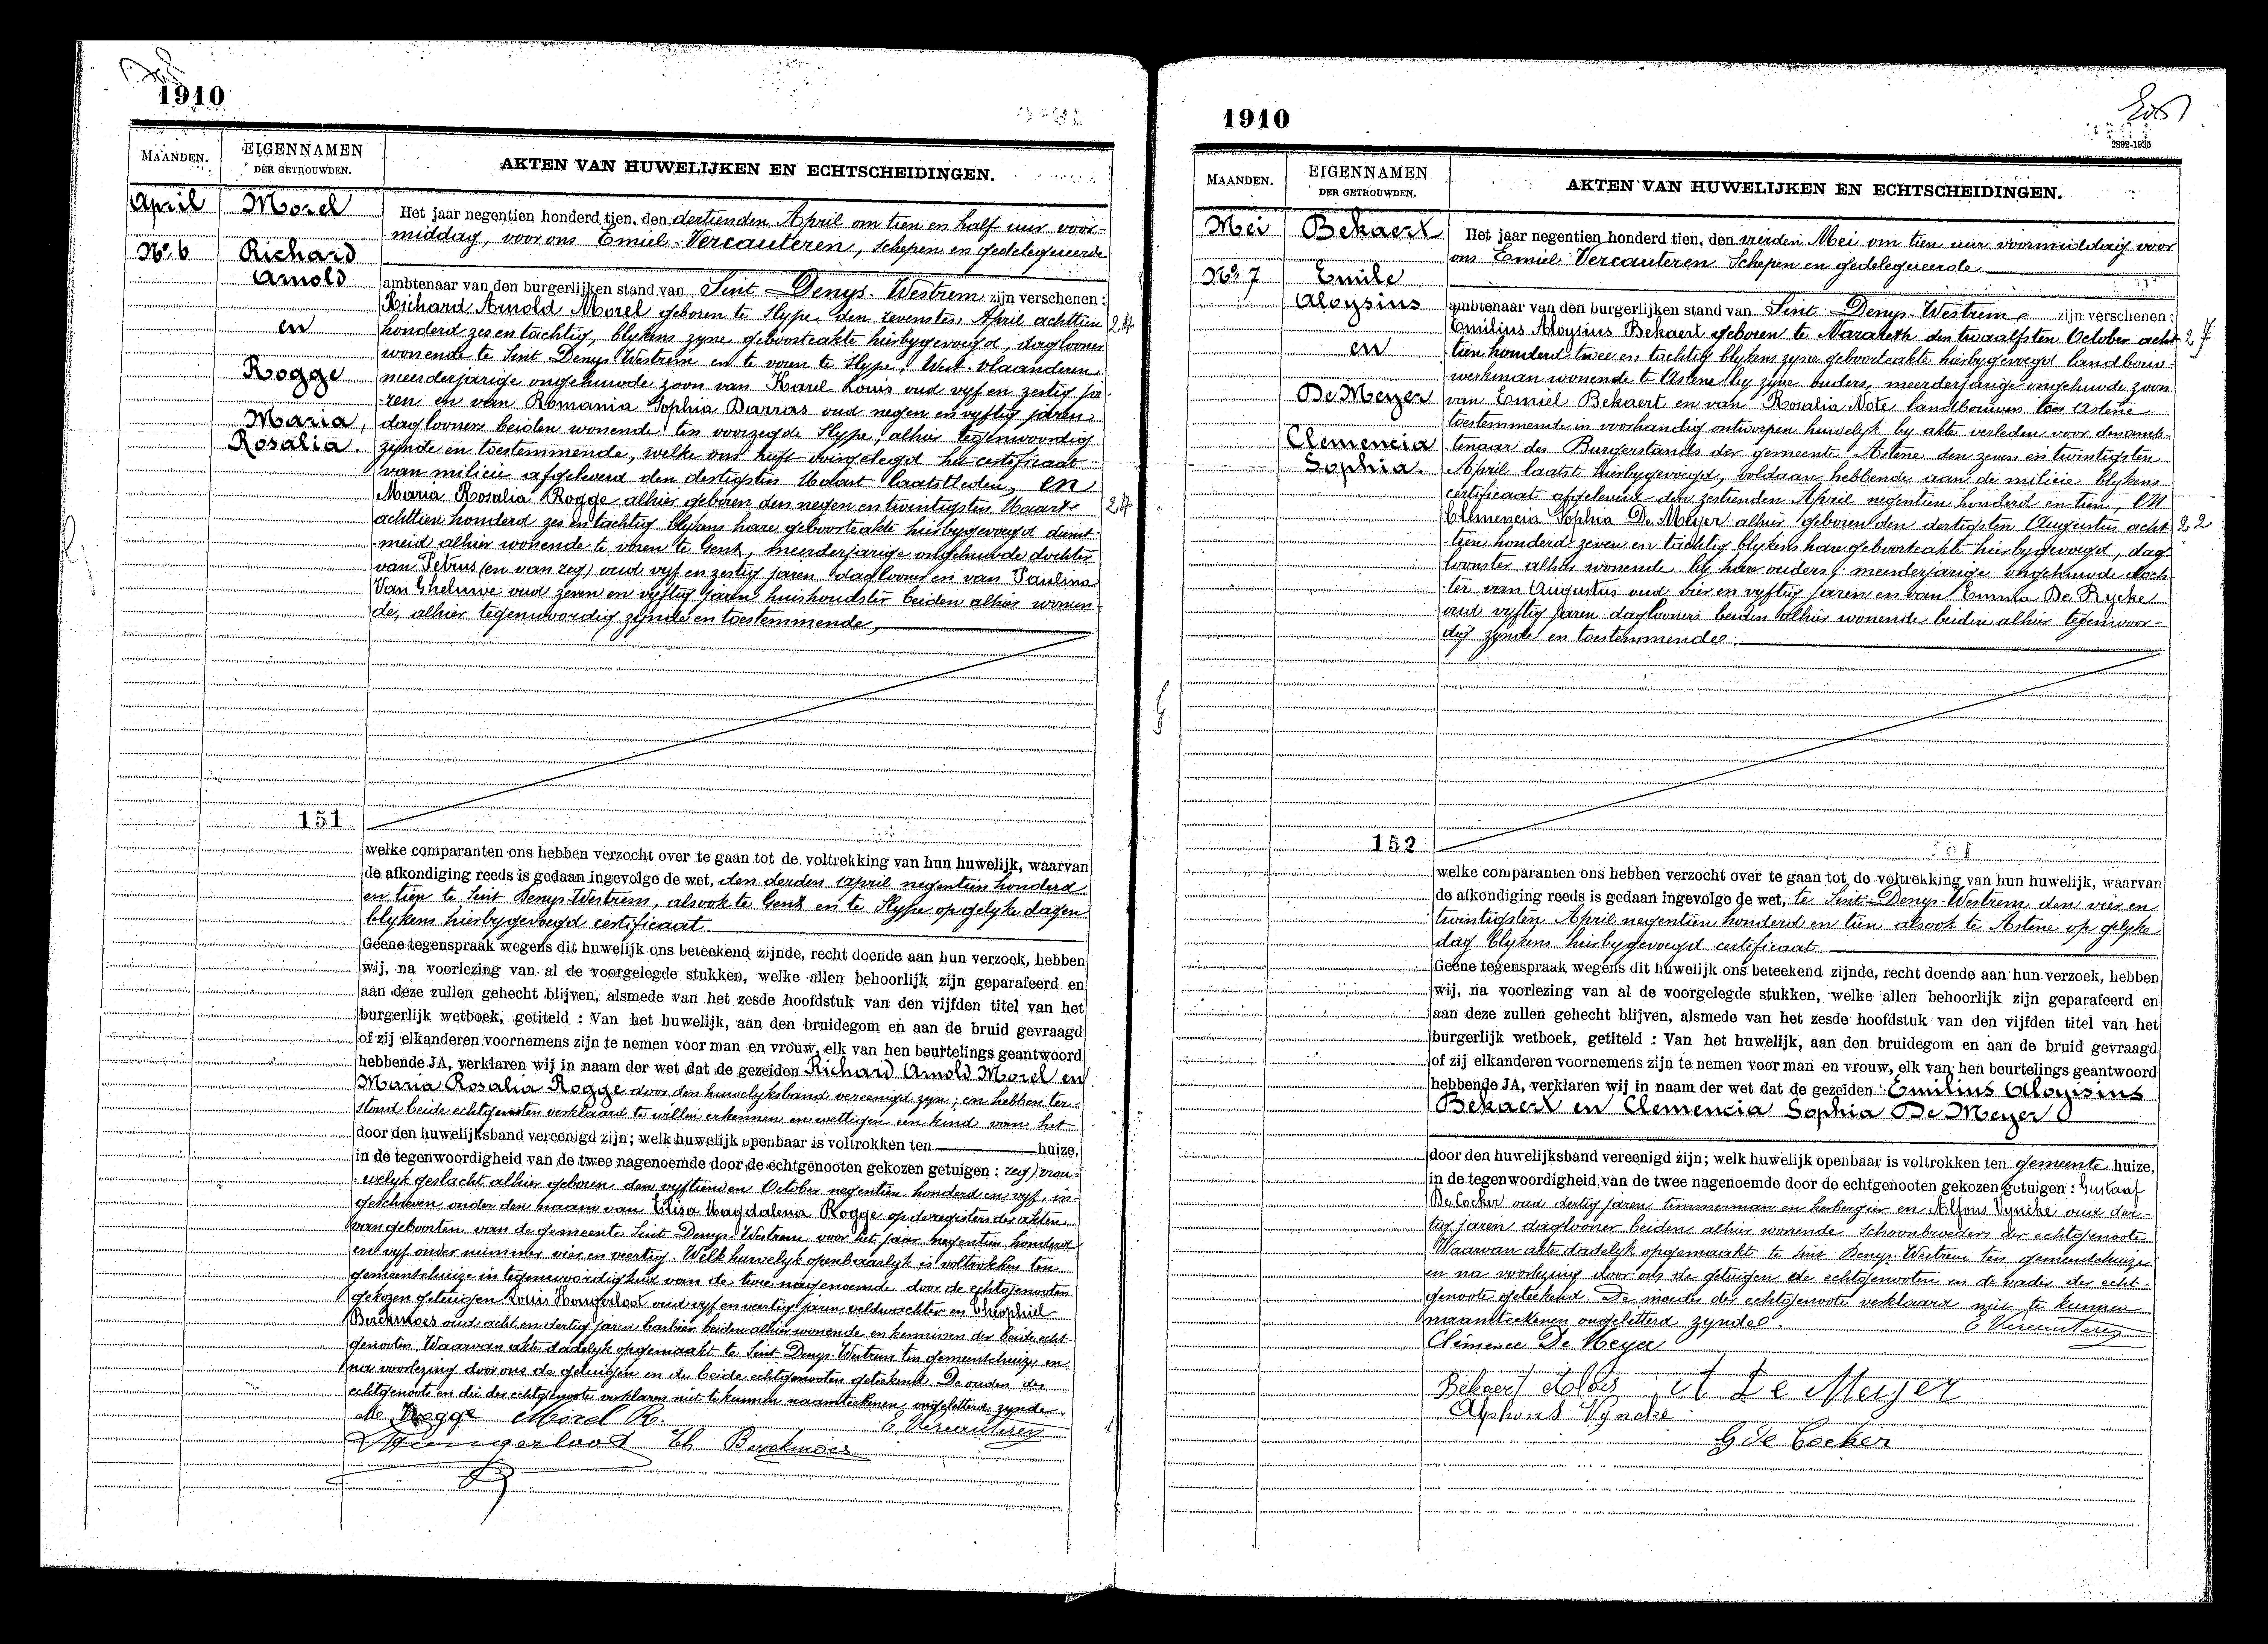 1910
MAANDEN. EIGENNAMEN DER GETROUWDEN. AKTEN VAN HUWELIJKEN EN ECHTSCHEIDINGEN.
April
No. 6
Morel
Richard
Arnold
en
Rogge
Maria,
Rosalia.
Het jaar negentien honderd tien, den dertienden April om tien en half uur voor-
middag, voor ons Emiel Vercauteren, schepen en gedelegueerde
ambtenaar van den burgerlijken stand van Sint-Denys-Westrem zijn verschenen:
Richard Arnold Morel geboren te Slype, den zevensten April achttien 24
honderd zes en tachtig, blykens zyne geboorteakte hierbygevoegd, daglooner
wonende te Sint Denys Westrem en te voren te Slype, West-vlaanderen,
meerderjarige ongehuwde zoon van Karel Louis oud vyf en zestig ja-
ren en van Romania Sophia Darras oud negen en vyftig jaren
daglooners beiden wonende ten voorzegde Slype, alhier tegenwoordig
zynde en toestemmende, welke ons heeft voorgelegd het certificaat
van milicie afgeleverd den dertigsten Maart laatstleden, en
Maria Rosalia Rogge alhier geboren den negen en twintigsten Maart 24
achttien honderd zes en tachtig blykens hare geboorteakte hierbygevoegd dienst-
meid alhier wonende te voren te Gent, meerderjarige ongehuwde dochter
van Petrus (en van zeg) oud vyf en zestig jaren daglooner en van Paulina
Van Gheluwe oud zeven en vyftig jaren huishoudster beiden alhier wonen-
de, alhier tegenwoordig zynde en toestemmende,
151
welke comparanten ons hebben verzocht over te gaan tot de voltrekking van hun huwelijk, waarvan
de afkondiging reeds is gedaan ingevolge de wet, den derden April negentien honderd
en tien te Sint Denys Westrem, alsook te Gent en te Slype op gelyke dagen
blykens hierbygevoegd certificaat.
Geene tegenspraak wegens dit huwelijk ons beteekend zijnde, recht doende aan hun verzoek, hebben
wij, na voorlezing van al de voorgelegde stukken, welke allen behoorlijk zijn geparafeerd en
aan deze zullen gehecht blijven, alsmede van het zesde hoofdstuk van den vijfden titel van het
burgerlijk wetboek, getiteld : Van het huwelijk, aan den bruidegom en aan de bruid gevraagd
of zij elkanderen voornemens zijn te nemen voor man en vrouw, elk van hen beurtelings geantwoord
hebbende JA, verklaren wij in naam der wet dat de gezeiden Richard Arnold Morel en
Maria Rosalia Rogge door den huwelyksband vereenigd zyn, en hebben ter-
stond beide echtgenoten verklaard te willen erkennen en wettigen een kind van het
door den huwelijksband vereenigd zijn; welk huwelijk openbaar is voltrokken ten huize,
in de tegenwoordigheid van de twee nagenoemde door de echtgenooten gekozen getuigen : zeg) vrou-
welyk geslacht alhier geboren den vyftienden October negentien honderd en vyf, in-
geschreven onder den naam van Elisa Magdalena Rogge op de registers der akten
van geboorten van de gemeente Sint Denys Westrem voor het jaar negentien honderd
en vyf onder nummer vier en veertig. Welk huwelyk openbaarlyk is voltrokken ten
gemeentehuize in tegenwoordigheid van de twee nagenoemde door de echtgenooten
gekozen getuigen Louis Hongerloot oud vyf en veertig jaren veldwachter en Theophiel
Berckmoes oud acht en dertig jaren barbier beiden alhier wonende en kennissen der beide echt-
genooten. Waarvan akte dadelyk opgemaakt te Sint Denys Westrem ten gemeentehuize en
na voorlezing door ons de getuigen en de beide echtgenooten geteekend. De ouders des
echtgenoots en die der echtgenoote verklaren niet te kunnen naamteekenen ongeletterd zynde.
M Rogge Morel R. E Vercauteren
Hongerloot Th Berckmoes
1910
2392-1935
MAANDEN. EIGENNAMEN DER GETROUWDEN. AKTEN VAN HUWELIJKEN EN ECHTSCHEIDINGEN.
Mei
No. 7
Bekaert
Emile
Aloysius
en
De Meyer
Clemencia
Sophia.
Het jaar negentien honderd tien, den vierden Mei om tien uur voormiddag voor
ons Emiel Vercauteren Schepen en gedelegueerde
ambtenaar van den burgerlijken stand van Sint-Denys-Westrem zijn verschenen:
Emilius Aloysius Bekaert geboren te Nazareth den twaalfsten October acht 27
tien honderd twee en tachtig blykens zyne geboorteakte hierbygevoegd landbouw-
werkman wonende te Astene by zyne ouders, meerderjarige ongehuwde zoon
van Emiel Bekaert en van Rosalia Note landbouwers tot Astene
toestemmende in voorhandig ontworpen huwelyk by akte verleden voor den amb-
tenaar des Burgerstands der gemeente Astene den zeven en twintigsten
April laatst hierbygevoegd, voldaan hebbende aan de milicie blykens
certificaat afgeleverd den zestienden April negentien honderd en tien, en
Clemencia Sophia De Meyer alhier geboren den dertigsten Augustus acht 22
tien honderd zeven en tachtig blykens hare geboorteakte hierbygevoegd, dag
loonster alhier wonende by hare ouders, meerderjarige ongehuwde doch
ter van Augustus oud vier en vyftig jaren en van Emma De Rycke
oud vyftig jaren daglooners beiden alhier wonende beiden alhier tegenwoor-
dig zynde en toestemmende.
152
welke comparanten ons hebben verzocht over te gaan tot de voltrekking van hun huwelijk, waarvan
de afkondiging reeds is gedaan ingevolge de wet, te Sint-Denys-Westrem den vier en
twintigsten April negentien honderd en tien alsook te Astene op gelyke
dag blykens hierbygevoegd certificaat
Geene tegenspraak wegens dit huwelijk ons beteekend zijnde, recht doende aan hun verzoek, hebben
wij, na voorlezing van al de voorgelegde stukken, welke allen behoorlijk zijn geparafeerd en
aan deze zullen gehecht blijven, alsmede van het zesde hoofdstuk van den vijfden titel van het
burgerlijk wetboek, getiteld : Van het huwelijk, aan den bruidegom en aan de bruid gevraagd
of zij elkanderen voornemens zijn te nemen voor man en vrouw, elk van hen beurtelings geantwoord
hebbende JA, verklaren wij in naam der wet dat de gezeiden Emilius Aloysius
Bekaert en Clemencia Sophia De Meyer
door den huwelijksband vereenigd zijn; welk huwelijk openbaar is voltrokken ten gemeente huize,
in de tegenwoordigheid van de twee nagenoemde door de echtgenooten gekozen getuigen : Gustaaf
De Cocker oud dertig jaren timmerman en herbergier en Alfons Vyncke oud der-
tig jaren daglooner beiden alhier wonende Schoonbroeders der echtgenoote
Waarvan akte dadelyk opgemaakt te Sint Denys-Westrem ten gemeentehuize
en na voorlezing door ons de getuigen de echtgenooten en de vader der echt-
genoote geteekend. De moeder der echtgenoote verklaard niet te kunnen
naamteekenen ongeletterd zynde. E Vercauteren
Clémence De Meyer
Bekaert Aloïs A De Meyer
Alphons Vyncke
G de Cocker